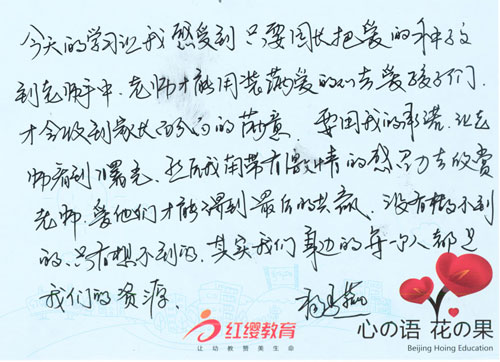 今天的学习让我感受到只要园长把爱的种子放
到老师手中,老师才能用装满爱的心去爱孩子们,
才会收到家长百分百的满意。要用我的承诺,让老
师看到曙光,然后我用带有激情的感召力去欣赏
老师,爱他们才能得到最后的共赢,没有做不到
的,只有想不到的,其实我们身边的每个人都是
我们的资源。
红缨教育
让幼教赞美生命
心の语 花の果
Beijing Hoing Education